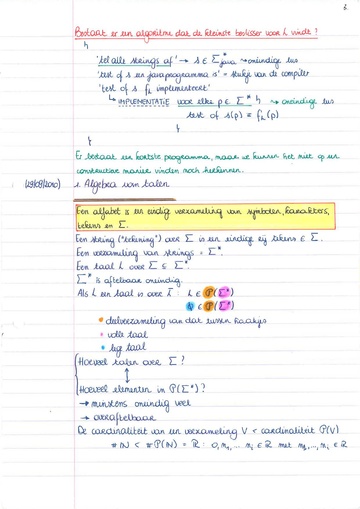 Bestaat er een algoritme dat de kleinste beslisser voor L vindt?
'tel alle strings af' → s ∈ Σ*java → oneindige lus
'test of s een javaprogramma is' = stukje van de compiler
'test of s fL implementeert'
↳ IMPLEMENTATIE voor elke p ∈ Σ* → oneindige lus
test of s(p) = fL(p)
Er bestaat een kortste programma, maar we kunnen het niet op een
constructieve manier vinden noch herkennen.
Algebra van talen
Een alfabet is een eindig verzameling van symbolen, karakters,
tekens en Σ.
Een string ("tekening") over Σ is een eindige rij tekens ∈ Σ.
Een verzameling van strings = Σ*.
Een taal L over Σ ⊆ Σ*.
Σ* is aftelbaar oneindig.
Als L een taal is over Σ: L ∈ P(Σ*)
deelverzameling van dat tussen haakjes
volle taal
lege taal
Hoeveel talen over Σ?
Hoeveel elementen in P(Σ*)?
→ minstens oneindig veel
→ overaftelbaar
De cardinaliteit van een verzameling V < cardinaliteit P(V)
#ℕ < #P(ℕ) = ℝ: 0,n₁,...